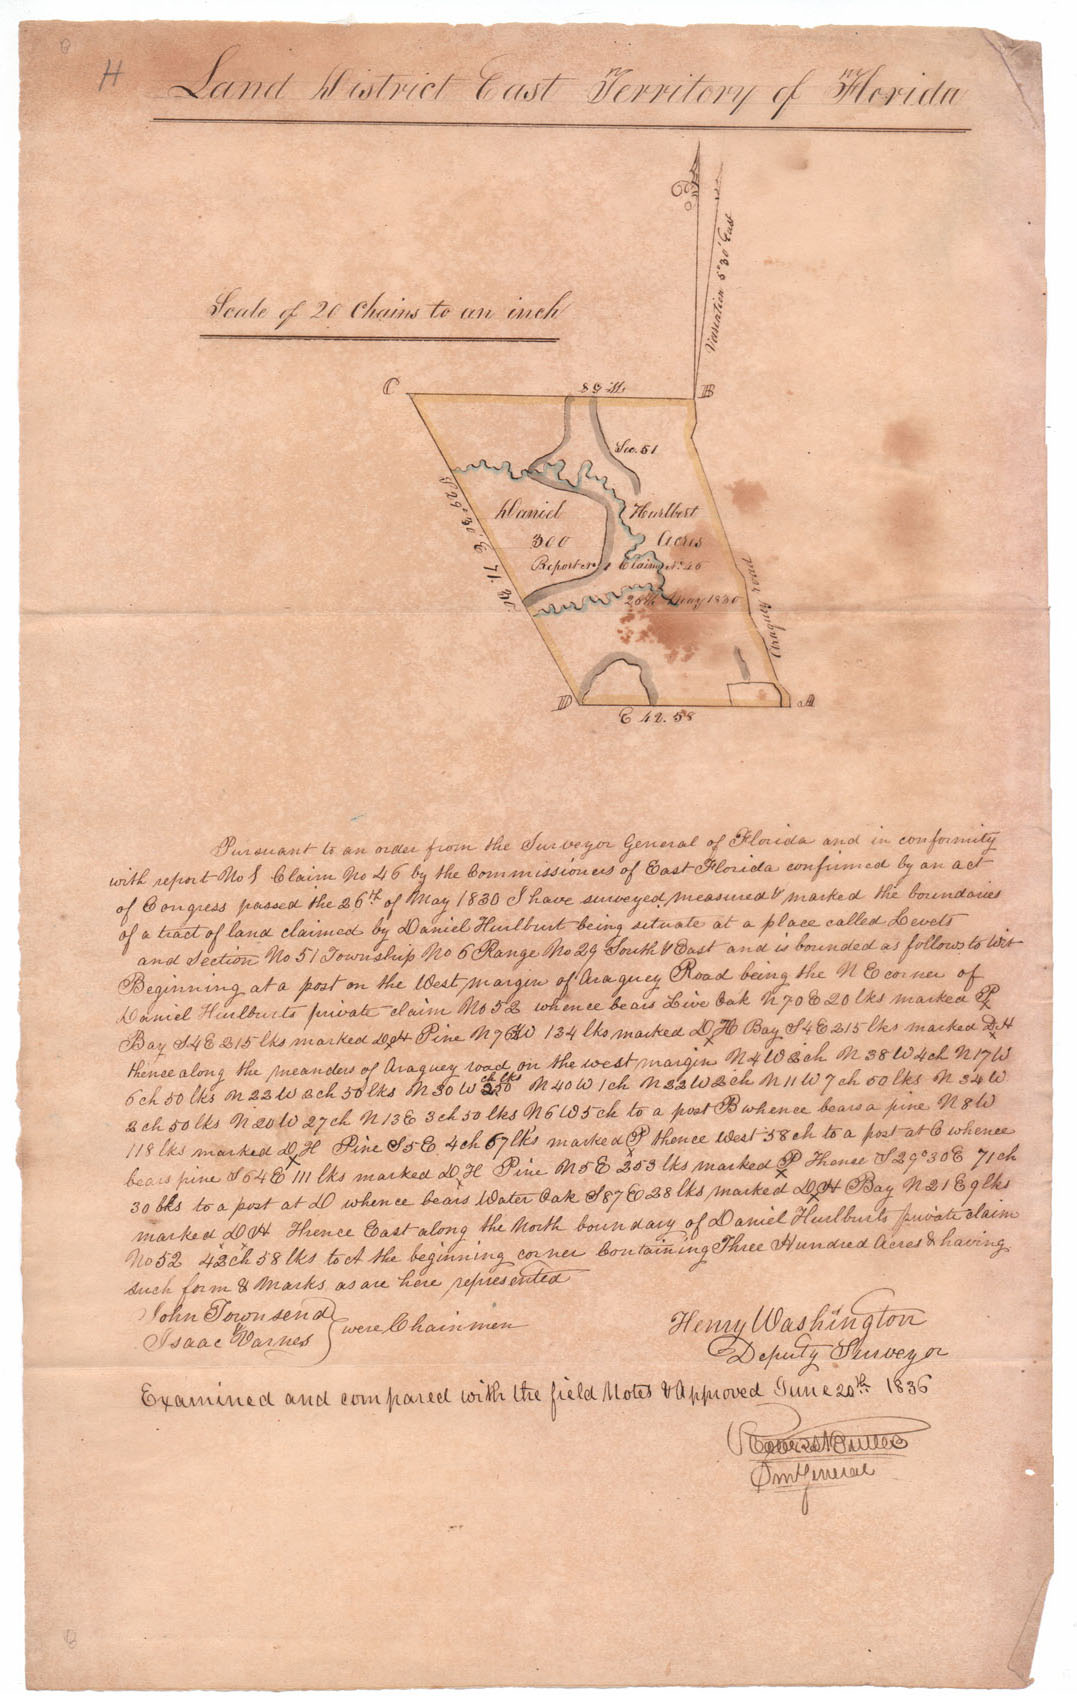 H
Land District East Territory of Florida
Variation 5°30' East
Scale of 20 Chains to an inch
C
W 58
B
Sec. 51
S 29°30' E 71.30
Daniel Hurlbert
300 Acres
Report No 1 Claim No 46
26th May 1830
Araguey road
D
E 42.58
A
Pursuant to an order from the Surveyor General of Florida and in conformity
with report No 1 Claim No 46 by the Commissioners of East Florida confirmed by an act
of Congress passed the 26th of May 1830 I have surveyed, measured & marked the boundaries
of a tract of land claimed by Daniel Hurlburt being situate at a place called Levets
and Section No 51 Township No 6 Range No 29 South & East and is bounded as follows to wit
Beginning at a post on the West, margin of Araguey Road being the N E corner of
Daniel Hurlburts private claim No 52 whence bears Live Oak N 70 E 20 lks marked P
Bay S 4 E 215 lks marked D H Pine N 76 W 134 lks marked D H Bay S 4 E 215 lks marked D H
thence along the meanders of Araguey road on the west margin N 4 W 2 ch N 38 W 4 ch N 17 W
6 ch 50 lks N 22 W 3 ch 50 lks N 30 W ch lks 250 N 40 W 1 ch N 22 W 2 ch N 11 W 7 ch 50 lks N 34 W
2 ch 50 lks N 20 W 27 ch N 13 E 3 ch 50 lks N 6 W 5 ch to a post B whence bears a pine N 8 W
118 lks marked D H Pine S 5 E 4 ch 67 lks marked P thence West 58 ch to a post at C whence
bears pine S 64 E 111 lks marked D H Pine N 5 E 253 lks marked P Thence S 29°30 E 71 ch
30 lks to a post at D whence bears Water Oak S 87 E 28 lks marked D H Bay N 21 E 9 lks
marked D H Thence East along the North boundary of Daniel Hurlburts private claim
No 52 42 ch 58 lks to A the beginning corner Containing Three Hundred Acres & having
such form & Marks as are here represented
John Townsend
Isaac Varnes } were Chainmen
Henry Washington
Deputy Surveyor
Examined and compared with the field Notes & Approved June 20th 1836
Robert Butler
Sur General